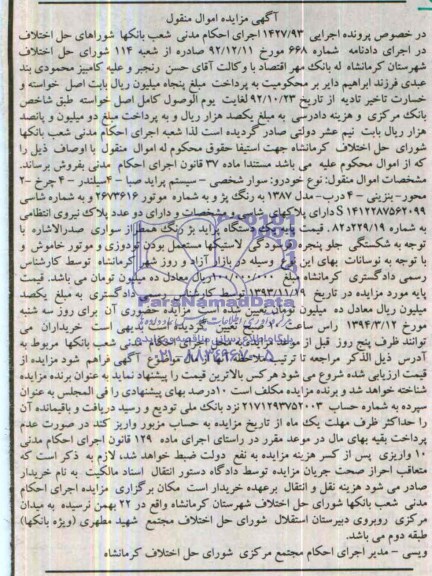 آگهی مزایده اموال منقول
در خصوص پرونده اجرایی ۱۴۲۷/۹۳ اجرای احکام مدنی شعب بانکها شوراهای حل اختلاف
در اجرای دادنامه شماره ۶۶۸ مورخ ۹۲/۱۲/۱۱ صادره از شعبه ۱۱۴ شورای حل اختلاف
شهرستان کرمانشاه له بانک مهر اقتصاد با وکالت آقای حسن رنجبر و علیه کامبیز محمودی بند
عبدی فرزند ابراهیم دایر بر محکومیت به پرداخت مبلغ پنجاه میلیون ریال بابت اصل خواسته و
خسارت تاخیر تادیه از تاریخ ۹۲/۱۰/۲۳ لغایت یوم الوصول کامل اصل خواسته طبق شاخص
بانک مرکزی و هزینه دادرسی به مبلغ یکصد هزار ریال و به پرداخت مبلغ دو میلیون و پانصد
هزار ریال بابت نیم عشر دولتی صادر گردیده است لذا شعبه اجرای احکام مدنی شعب بانکها
شورای حل اختلاف کرمانشاه جهت استیفا حقوق محکوم له اموال منقول با اوصاف ذیل را
که از اموال محکوم علیه می باشد مستندا ماده ۳۷ قانون اجرای احکام مدنی بفروش برساند.
مشخصات اموال منقول: نوع خودرو: سوار شخصی - سیستم پراید صبا - ۴سیلندر - ۴چرخ -۲
محور- بنزینی - ۴درب- مدل ۱۳۸۷ به رنگ پژ و به شماره موتور ۲۶۷۳۶۱۶ و به شماره شاسی
S۱۴۱۲۲۸۷۵۶۲۰۹۹ دارای پلاکهای
به شماره ۲۲۹/۱۹د۸۲. قیمت پایه دستگاه پراید بژ رنگ
به توجه به شکستگی جلو پنجره فرورفتگی لاستیکها مستعمل بودن تودوزی و موتور خاموش و
با توجه به نوسانات بهای این نوع وسیله در بازار آزاد و روز شهر کرمانشاه توسط کارشناس
رسمی دادگستری کرمانشاه مبلغ ۱۰۰/۰۰۰/۰۰۰ ریال معادل ده میلیون تومان می باشد. قیمت
پایه مورد مزایده در تاریخ ۱۳۹۳/۱۱/۱۹ توسط کارشناس دادگستری به مبلغ یکصد
میلیون ریال معادل ده میلیون تومان تعیین شده است مزایده حضوری آن برای روز سه شنبه
مورخ ۱۳۹۴/۳/۱۲ راس ساعت بدیهی است خریداران می
توانند ظرف پنج روز قبل از موعد مزایده اجرای احکام مدنی شعب بانکها مربوط به
آدرس ذیل الذکر مراجعه تا ترتیب ملاحظه آنها از مال موضوع آگهی فراهم شود مزایده از
قیمت ارزیابی شده شروع می شود هرکس بالاترین قیمت را پیشنهاد نماید به عنوان برنده مزایده
شناخته خواهد شد و برنده مزایده مکلف است ۱۰درصد بهای پیشنهادی را فی المجلس به عنوان
سپرده به شماره حساب ۲۱۷۱۲۹۳۷۵۲۰۰۳ نزد بانک ملی تودیع و رسید دریافت و باقیمانده آن
را حداکثر ظرف مهلت یک ماه از تاریخ مزایده به حساب مزبور واریز کند در صورت عدم
پرداخت بقیه بهای مال در موعد مقرر در راستای اجرای ماده ۱۲۹ قانون اجرای احکام مدنی
۱۰ واریزی پس از کسر هزینه مزایده به نفع دولت ضبط خواهد شد، لازم به ذکر است که
متعاقب احراز صحت جریان مزایده توسط دادگاه دستور انتقال اسناد مالکیت به نام خریدار
صادر می شود هزینه نقل و انتقال برعهده خریدار است مکان برگزاری مزایده اجرای احکام
مدنی شعب بانکها شورای حل اختلاف شهرستان کرمانشاه واقع در ۲۲ بهمن نرسیده به میدان
مرکزی روبروی دبیرستان استقلال شورای حل اختلاف مجتمع شهید مطهری (ویژه بانکها)
طبقه دوم می باشد.
ویسی - مدیر اجرای احکام مجتمع مرکزی شورای حل اختلاف کرمانشاه
ParsNamadData